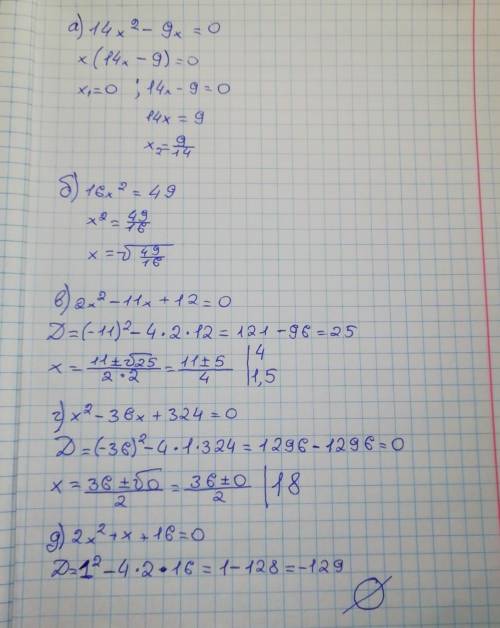 а) 14x² - 9x = 0
x(14x - 9) = 0
x₁ = 0 ; 14x - 9 = 0
14x = 9
x₂ = 9/14
б) 16x² = 49
x² = 49/16
x = √(49/16)
в) 2x² - 11x + 12 = 0
D = (-11)² - 4·2·12 = 121 - 96 = 25
x = (11 ± √25)/(2·2) = (11 ± 5)/4 | 4
1,5
г) x² - 36x + 324 = 0
D = (-36)² - 4·1·324 = 1296 - 1296 = 0
x = (36 ± √0)/2 = (36 ± 0)/2 | 18
д) 2x² + x + 16 = 0
D = 1² - 4·2·16 = 1 - 128 = -129
∅